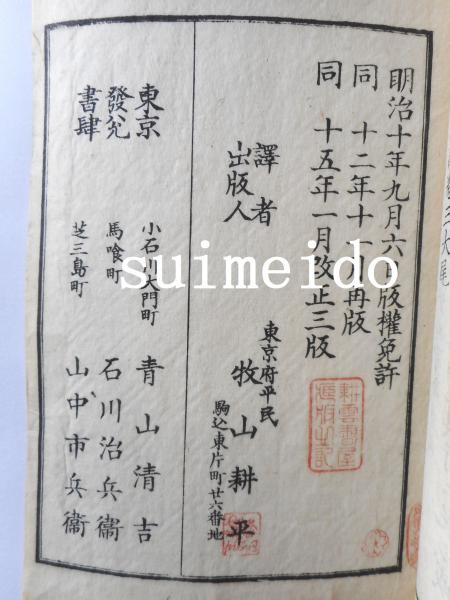 明治十年九月六日版權免許
同 十二年十一月再版
同 十五年一月改正三版
譯者
出版人
東京府平民
牧山耕平
駒込東片町廿六番地
東京
發兌
書肆
小石川大門町 青山清吉
馬喰町 石川治兵衞
芝三島町 山中市兵衞
耕雲書屋
蔵版之記
suimeido